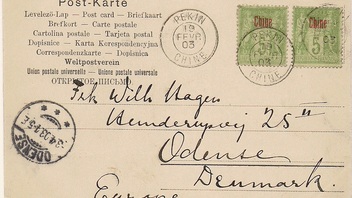 Post-Karte
Levelező-Lap — Post card — Briefkaart
Brefkort — Carte postale
Cartolina postale — Tarjeta postal
Dopisnice — Karta Korespondencyjna
Correspondenzkarte — Dopisnica
Weltpostverein
Union postale universelle — Unione postale universale
ОТКРЫТОЕ ПИСЬМО
PEKIN
19
FEVR
03
CHINE
Chine
Chine
5
03
CHINE
ODENSE
Frk Wilh Hagen
Hunderupvej 25
Odense
Denmark
Europe